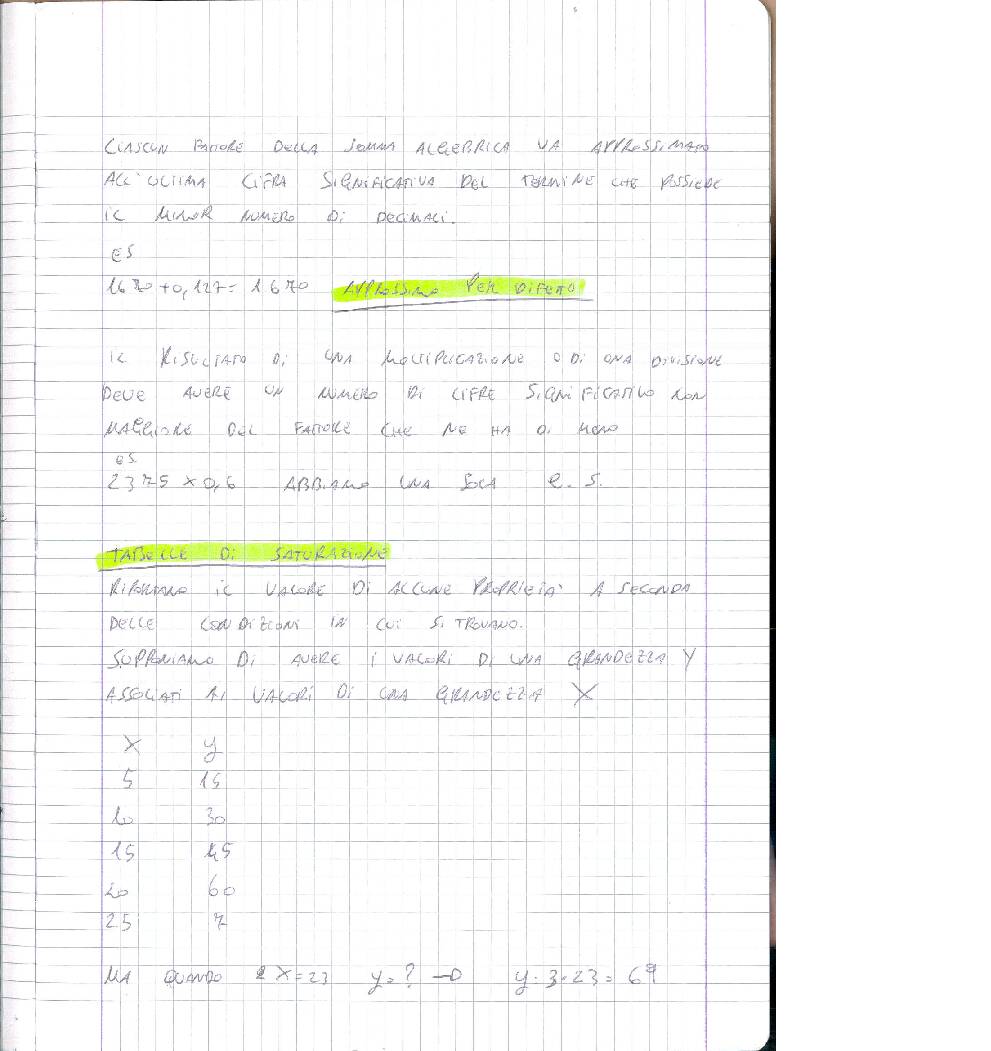 CIASCUN FATTORE DELLA SOMMA ALGEBRICA VA APPROSSIMATO
ALL'ULTIMA CIFRA SIGNIFICATIVA DEL TERMINE CHE POSSIEDE
IL MINOR NUMERO DI DECIMALI.
ES
1670 + 0,127 = 1670 APPROSSIMO PER DIFETTO
IL RISULTATO DI UNA MOLTIPLICAZIONE O DI UNA DIVISIONE
DEVE AVERE UN NUMERO DI CIFRE SIGNIFICATIVO NON
MAGGIORE DEL FATTORE CHE NE HA DI MENO
ES.
2375 x 0,6 ABBIAMO UNA SOLA C. S.
TABELLE DI SATURAZIONE
RIPORTANO IL VALORE DI ALCUNE PROPRIETA' A SECONDA
DELLE CONDIZIONI IN CUI SI TROVANO.
SUPPONIAMO DI AVERE I VALORI DI UNA GRANDEZZA Y
ASSOCIATI AI VALORI DI UNA GRANDEZZA X
X y
5 15
10 30
15 45
20 60
25 7
MA QUANDO X = 23 y = ? → y = 3 · 23 = 69